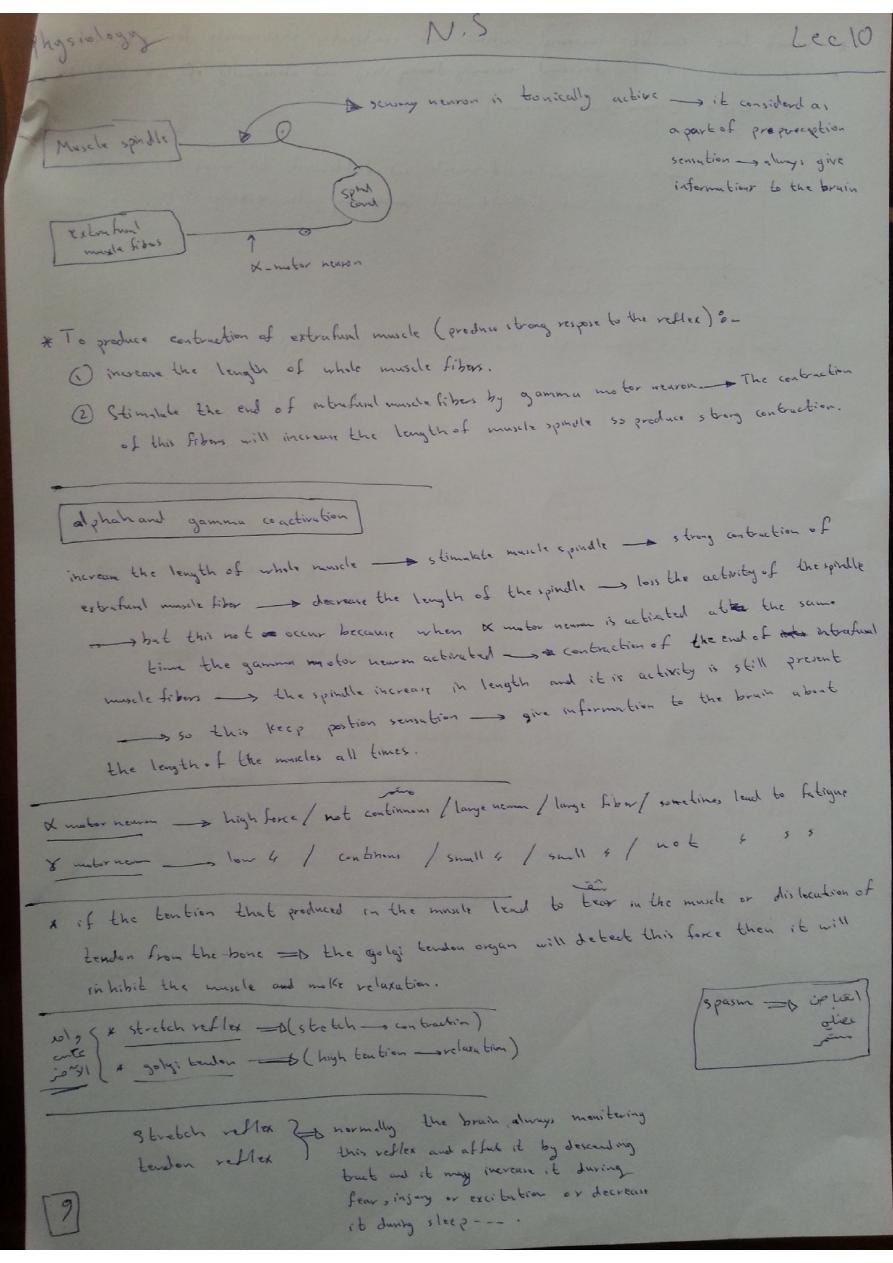 Physiology N.S Lec 10
Muscle spindle
sensory neuron is tonically active → it considerd as
a part of prepreception
sensation → always give
informations to the brain
Spinal
cord
extrafusal
muscle fibers
α-motor neuron
* To produce contraction of extrafusal muscle (produce strong respose to the reflex) :-
① increase the length of whole muscle fibers.
② Stimulate the end of intrafusal muscle fibers by gamma motor neuron → The contraction
of this fibers will increase the length of muscle spindle so produce strong contraction.
alphah and gamma coactivation
increase the length of whole muscle → stimulate muscle spindle → strong contraction of
extrafusal muscle fiber → decrease the length of the spindle → loss the activity of the spindle
→ but this not occur because when α motor neuron is activated at the same
time the gamma motor neuron activated → contraction of the end of intrafusal
muscle fibers → the spindle increase in length and it is activity is still present
→ so this keep postion sensation → give information to the brain about
the length of the muscles all times.
مستمر
α motor neuron → high force / not continuous / large neuron / large fiber / sometimes lead to fatigue
γ motor neuron → low 〃 / continous / small 〃 / small 〃 / not 〃 〃 〃
* if the tention that produced in the muscle lead to tear in the muscle or dislocution of
tendon from the bone ⇒ the golgi tendon organ will detect this force then it will
inhibit the muscle and make relaxation.
واحد
عكس
الآخر
* stretch reflex ⇒ (stretch → contraction)
* golgi tendon ⇒ (high tention → relaxation)
spasm ⇒ انقباض
عضلي
مستمر
stretch reflex
tendon reflex
⇒ normally the brain always monitering
this reflex and affect it by descending
tract and it may increase it during
fear, injury or excitation or decrease
it during sleep ---.
9